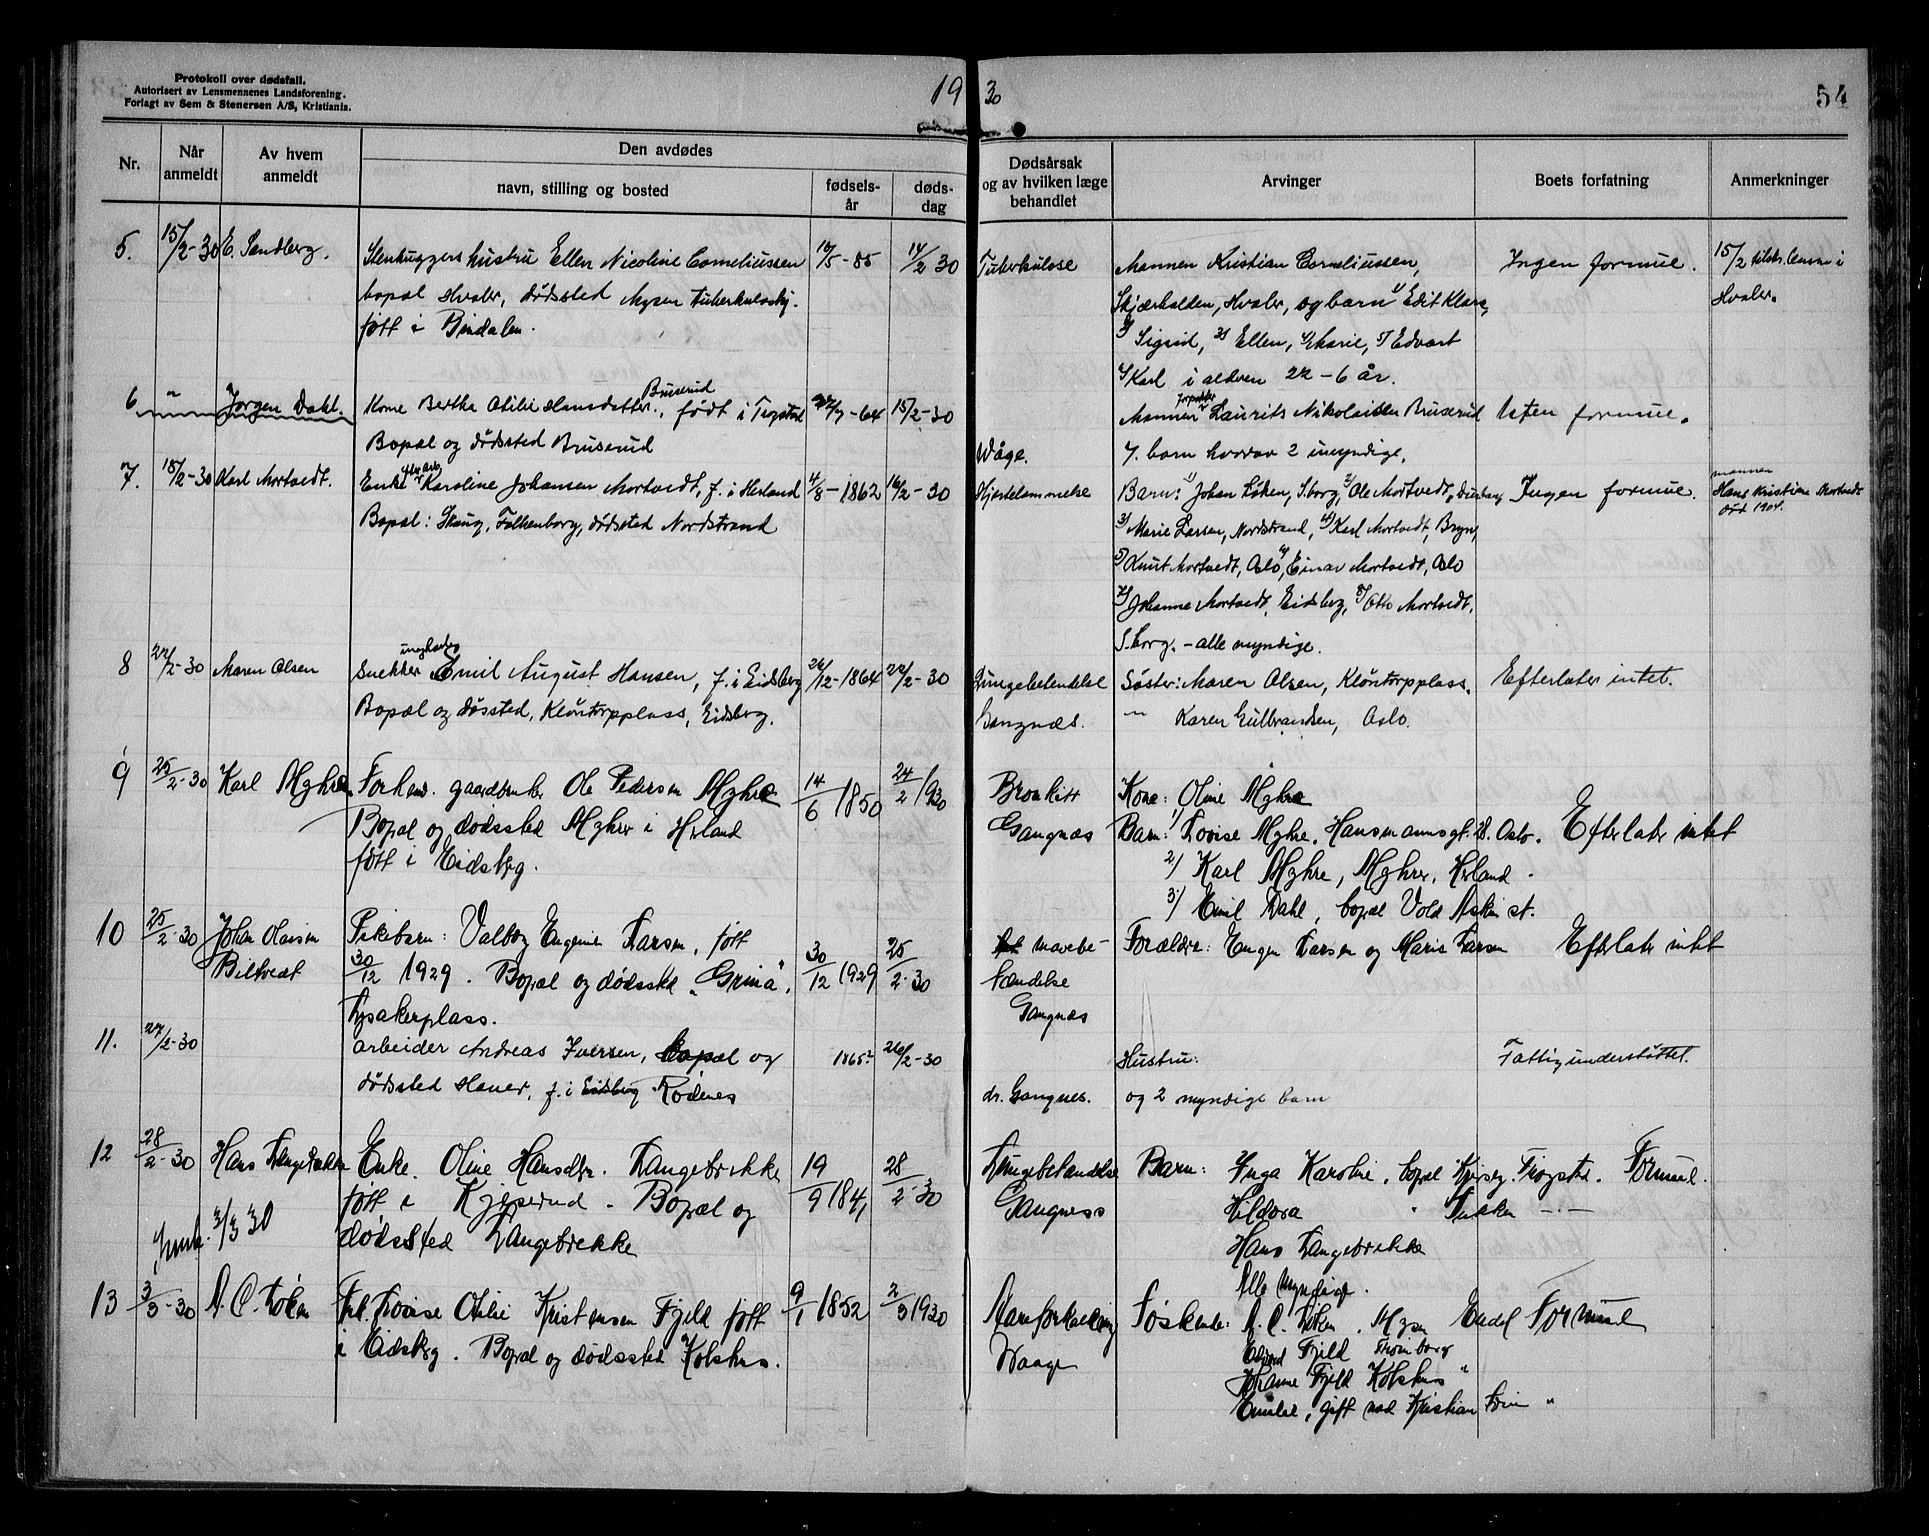 Protokoll over dødsfall.
Autorisert av Lensmennenes Landsforening.
Forlagt av Sem & Stenersen A/S, Kristiania.
19 30
54
Nr.
Når anmeldt
Av hvem anmeldt
Den avdødes
navn, stilling og bosted
fødselsår
dødsdag
Dødsårsak og av hvilken læge behandlet
Arvinger
Boets forfatning
Anmerkninger
5. 15/2-30 E. Sandberg. Stenhuggers hustru Ellen Nicoline Corneliussen 10/5-85 14/2 30 Tuberkulose Mannen Kristian Corneliussen, Ingen formue. 15/2 tilskr. lensm i
bopæl Hvaler, dødssted Mysen tuberkulosehj. Skjærhalden, Hvaler, og barn 1) Edit Klara, Hvaler.
født i Bindalen. 2) Sigrid, 3) Ellen, 4) Marie, 5) Edvart
6) Karl i alderen 22-6 år.
6 " Jørgen Dahl. Kone Bertha Otilie Hansdatter Buserud, født i Trøgstad 27/7-64 15/2-30 Mannen Laurits Nikolaisen Bruserud Uten formue.
Bopæl og dødssted Bruserud Wåge. 7. barn hvorav 2 umyndige.
7. 18/2-30 Karl Mortvedt. Enke efter arb. Karoline Johansen Mortvedt, f. i Herland 4/8-1862 16/2-30 Hjertelammelse Barn: 1) Johan Løken, S.borg, 2) Ole Mortvedt, Ingen formue. mannen Hans Kristian Mortvedt død 1904.
Bopæl: Skaug, Falkenborg, dødssted Nordstrand 3) Marie Larsen, Nordstrand, 4) Karl Mortvedt, Bryn,
5) Knut Mortvedt, Oslo, 6) Einar Mortvedt, Oslo
7) Johanne Mortvedt, Eidsberg, 8) Otto Mortvedt,
S.borg. - alle myndige.
8 22/2-30 Maren Olsen snekker ungkarl Emil August Hansen, f. i Eidsberg 26/12-1864 22/2-30 Lungebetendelse Søster: Maren Olsen, Kløntorpplass. Efterlater intet.
Bopæl og døssted, Kløntorpplass, Eidsberg. Gangnæs. " Karen Gulbrandsen, Oslo.
9 25/2-30 Karl Myhrer Forhenv. gaardbruker Ole Pedersen Myhre 14/6 1850 24/2 1930 Bronkitt Kone: Oline Myhre
Bopæl og dødssted Myhrer i Herland Gangnæs Barn: 1) Lovise Myhre, Hansmannsgt. 28. Oslo. Efterlater intet
født i Eidsberg. 2) Karl Myhre, Myhrer, Herland.
3) Emil Dahl, bopæl Vold Askim st.
10 25/2-30 Johan Olausen Pikebarn: Valborg Eugenie Larsen, født 30/12 1929 25/2-30 mavebe- Forældre: Eugen Larsen og Marie Larsen Efterlater intet
Biltvedt 30/12 1929. Bopæl og dødssted "Grina", tændelse
Lysakerplass. Gangnæs
11. 27/2-30 arbeider Andreas Iversen, bopæl og 1865? 26/2-30 Hustru: Fattigunderstøttet.
dødssted Haner, f. i Eidsberg Rødenes dr. Gangnes. og 2 myndige barn
12 28/2-30 Hans Langebrekke Enke. Oline Hansdtr. Langebrekke 19/9 1841 28/2-30 Lungebetændelse Barn: Inga Karoline, bopæl Trøgstad. Formue.
født i Kjiserud. Bopæl og Gangness Hildora " -"-
3/3 30 dødssted Langebrekke Hans Langebrekke
Alle myndige.
13 3/3-30 A. C. Løken Frk. Lovise Otilie Kristensen Fjeld født 9/1 1852 2/3 1930 Aareforkalkning Søskende: A. C. Løken, Mysen Endel Formue
i Eidsberg. Bopæl og dødssted Kolshus. Waage Edvard Fjeld
Johanne Fjeld Kolshus "
Emilie, gift med Kristian "